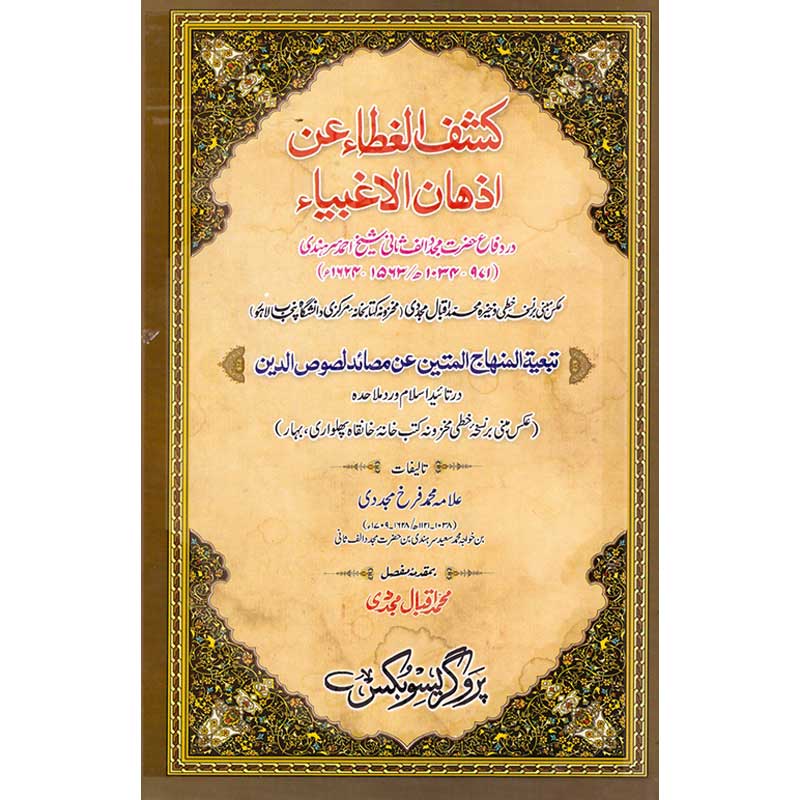 کشف الغطاء عن
اذھان الاغبیاء
در دفاع حضرت مجدد الف ثانی شیخ احمد سرہندی
(۹۷۱ - ۱۰۳۴ھ/ ۱۵۶۳ - ۱۶۲۴ء)
عکس مبنی بر نسخہ خطی ذخیرہ محمد اقبال مجددی (مخزونہ کتابخانہ مرکزی دانشگاہ پنجاب لاہور)
تبعیة المنهاج المتین عن مصائد لصوص الدین
در تائید اسلام و رد ملاحدہ
(عکس مبنی بر نسخہ خطی مخزونہ کتب خانہ خانقاہ پھلواری، بہار)
تالیفات
علامہ محمد فرخ مجددی
(۱۰۳۸-۱۱۲۱ھ/ ۱۶۲۸-۱۷۰۹ء)
بن خواجہ محمد سعید سرہندی بن حضرت مجدد الف ثانی
بمقدمہ مفصل
محمد اقبال مجددی
پروگریسو بکس